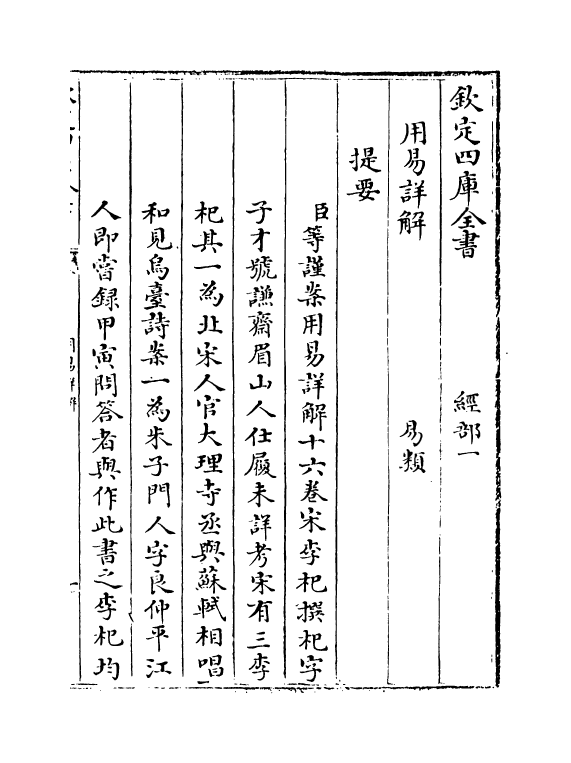 欽定四庫全書　　　經部一
用易詳解　　　　　易類
提要
臣等謹案用易詳解十六卷宋李杞撰杞字
子才號謙齋眉山人仕履未詳考宋有三李
杞其一為北宋人官大理寺丞與蘇軾相唱
和見烏臺詩案一為朱子門人字良仲平江
人即嘗録甲寅問答者與作此書之李杞均
用易詳解